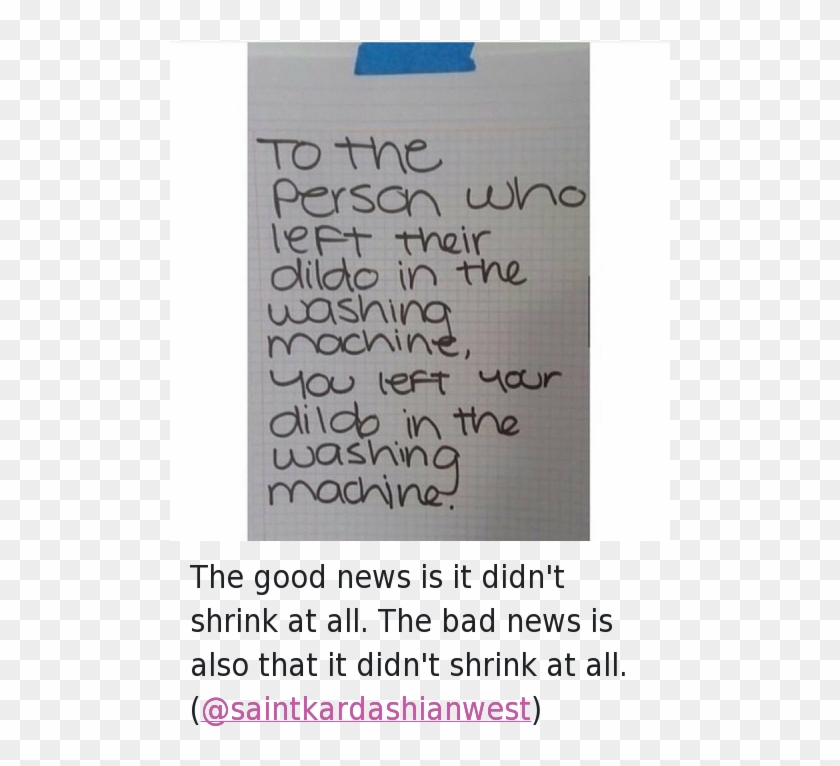 To the
person who
left their
dildo in the
washing
machine,
you left your
dildo in the
washing
machine.
The good news is it didn't
shrink at all. The bad news is
also that it didn't shrink at all.
(@saintkardashianwest)